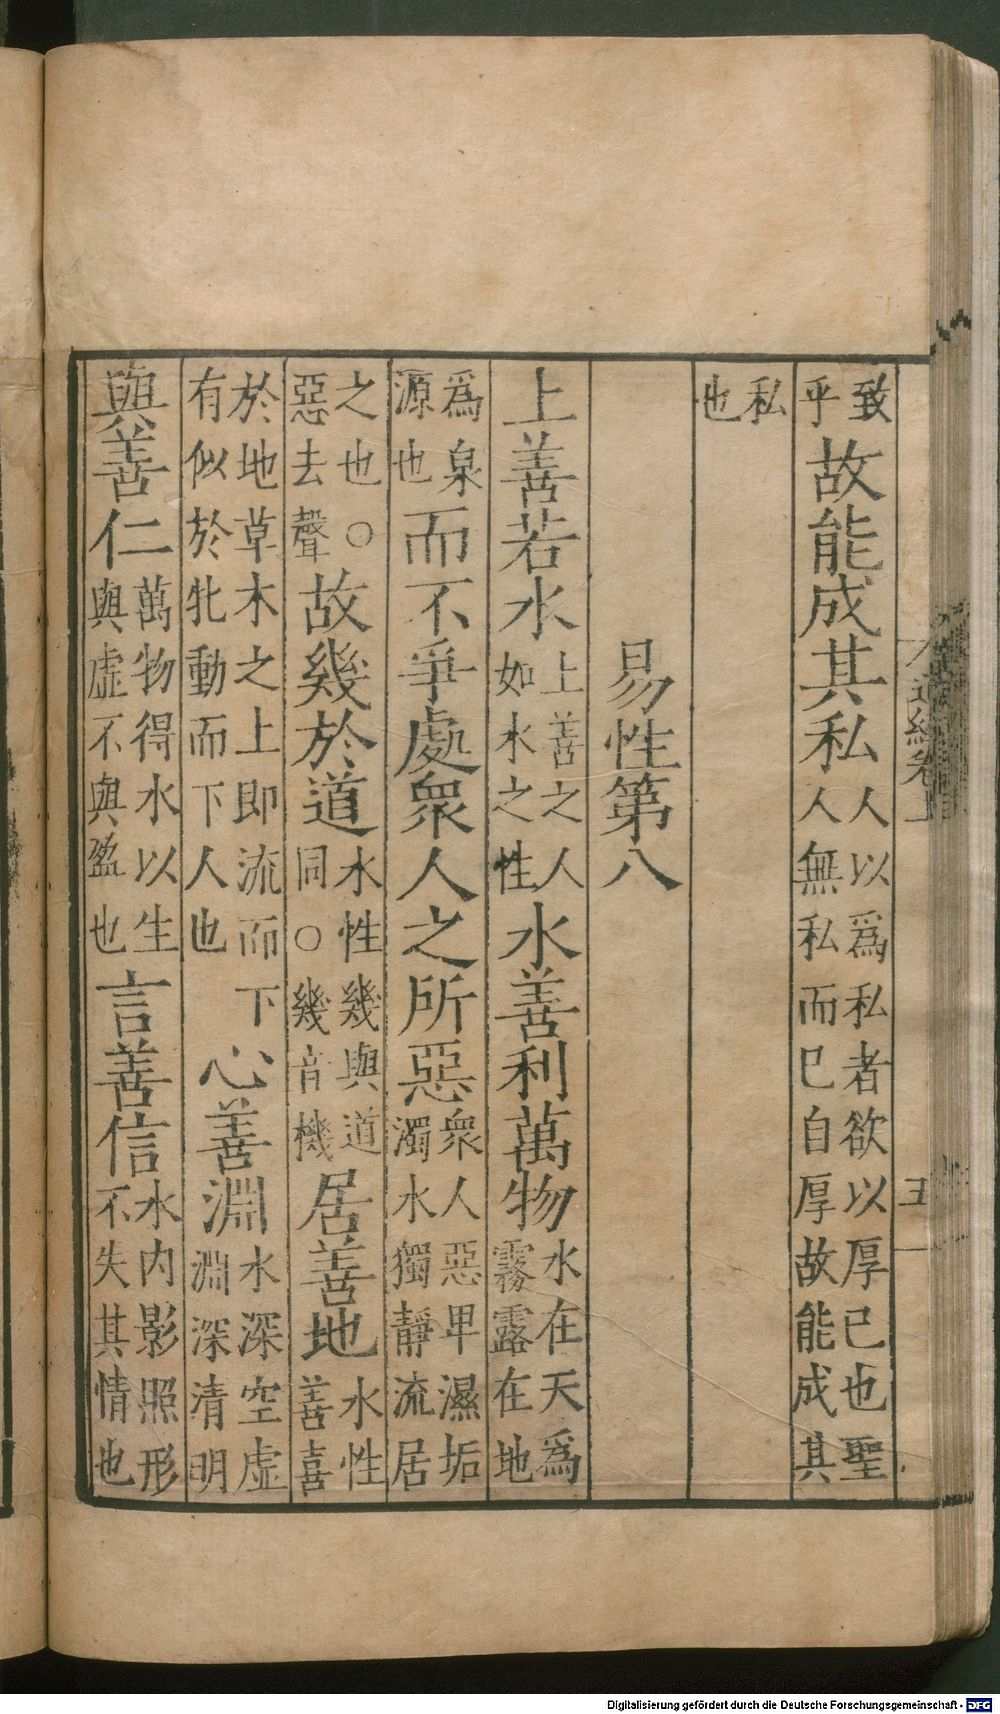 道經卷上 五
致乎故能成其私人以爲私者欲以厚己也聖人無私而已自厚故能成其
私也
易性第八
上善若水上善之人如水之性水善利萬物水在天爲霧露在地
爲泉源也而不爭處衆人之所惡衆人惡卑濕垢濁水獨靜流居
之也○惡去聲故幾於道水性幾與道同○幾音機居善地水性善喜
於地草木之上即流而下有似於牝動而下人也心善淵水深空虛淵深清明
與善仁萬物得水以生與虛不與盈也言善信水内影照形不失其情也
Digitalisierung gefördert durch die Deutsche Forschungsgemeinschaft - DFG